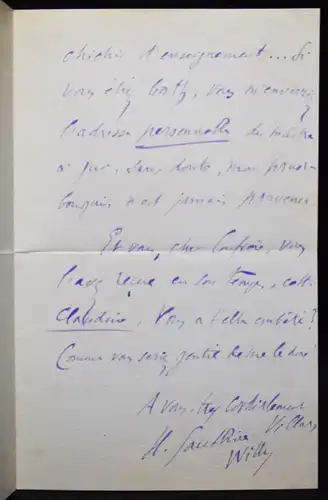 chichis d'enseignement... Si
vous étiez gentil, vous m'enverriez
l'adresse personnelle du maître
à qui, sans doute, mon pauvre
bouquin n'est jamais parvenu.
Et vous, cher Confrère, vous
l'avez reçue en son temps, cette
Claudine, Vous a-t-elle embêté ?
Comme vous seriez gentil de me le dire !
A vous, très cordialement
H. Gauthier Villars
Willy